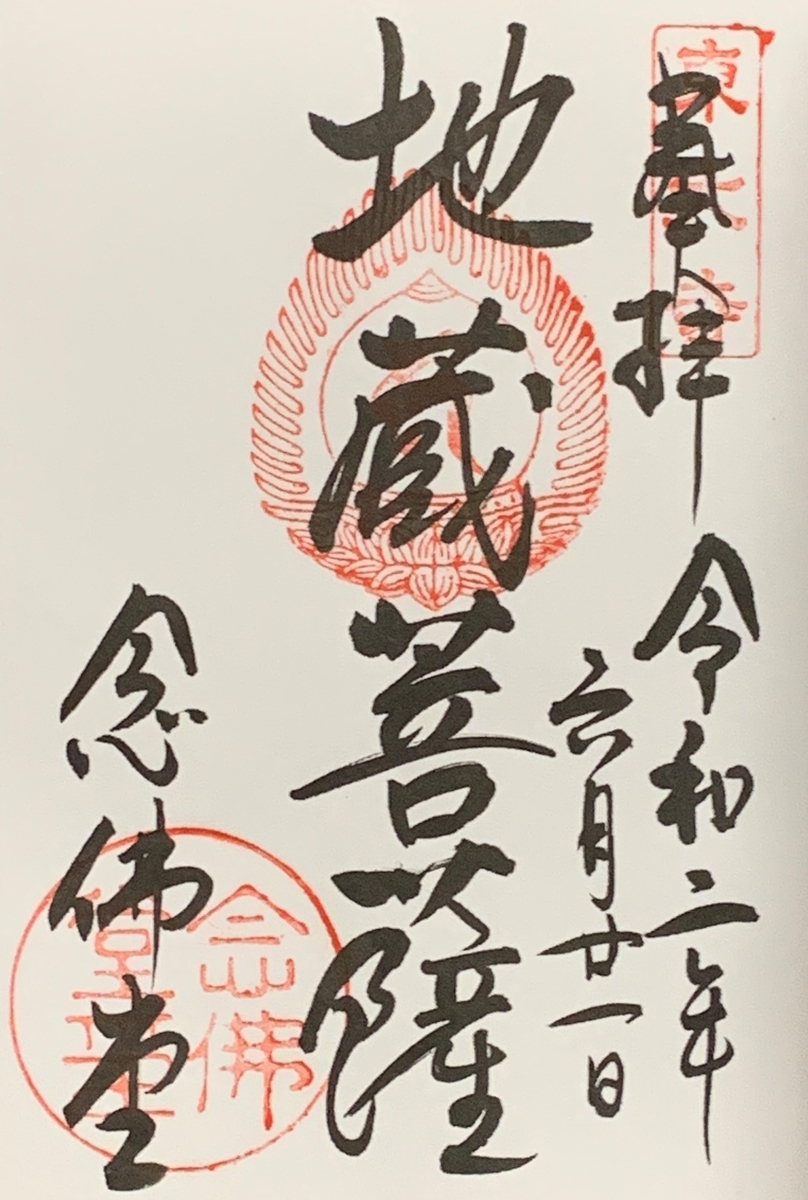 奉拝
令和二年
六月廿一日
地蔵菩薩
念佛堂
東大寺
念佛
堂章